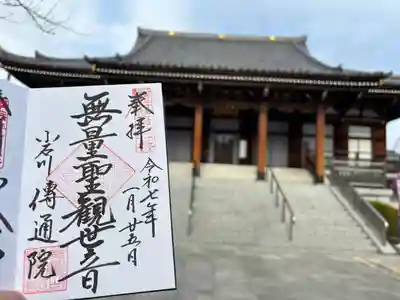 奉拝
令和七年
一月廿五日
無量聖觀世音
小石川 傳通院